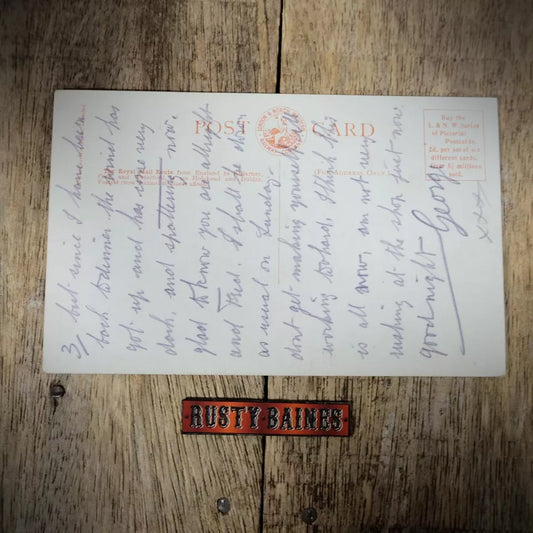 POST CARD
Royal Mail Route from England to
(FOR ADDRESS ONLY.)
Buy the
L. & N. W. Series
of Pictorial
Postcards.
2d. per set of
different cards.
Over 5½ millions
sold.
3/ but since I have been
back to dinner the wind has
got up and has come very
dark, and spotting now.
glad to know you are allright
and that I shall be down
as usual on Sunday.
dont get making yourself ill
working to hard, I think this
is all now, am not very
rushing at the shop just now.
goodnight George
xxx
RUSTY·BAINES